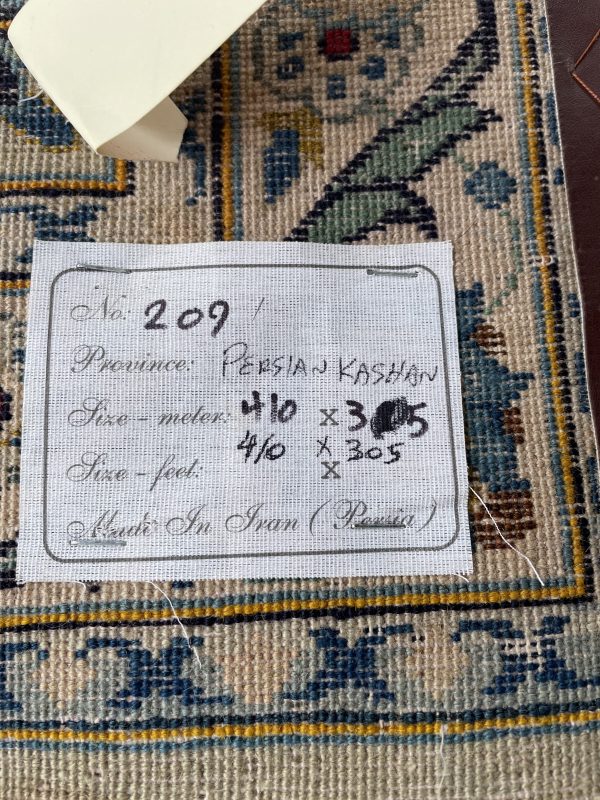 No: 209
Province: PERSIAN KASHAN
Size - meter: 410 X 3 5
410 X 305
Size - feet: X
Made In Iran ( Persia )